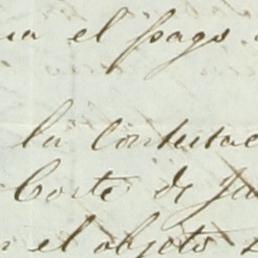 el pago
la contestac
Corte de Ju
el objeto